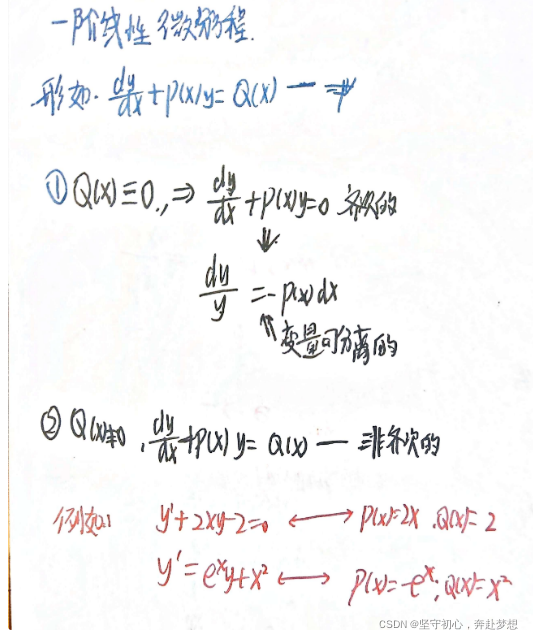 一阶线性微分方程.
形如. dy/dx + P(x)y = Q(x) —
① Q(x) ≡ 0 ., ⇒ dy/dx + P(x)y = 0 齐次的
↓
dy/y = -P(x)dx
⇑ 变量可分离的
② Q(x)≢0 , dy/dx + P(x)y = Q(x) — 非齐次的
例如: y' + 2xy - 2 = 0 ⟷ P(x) = 2x . Q(x) = 2
y' = e^x y + x² ⟷ P(x) = -e^x ; Q(x) = x²
CSDN @坚守初心,奔赴梦想